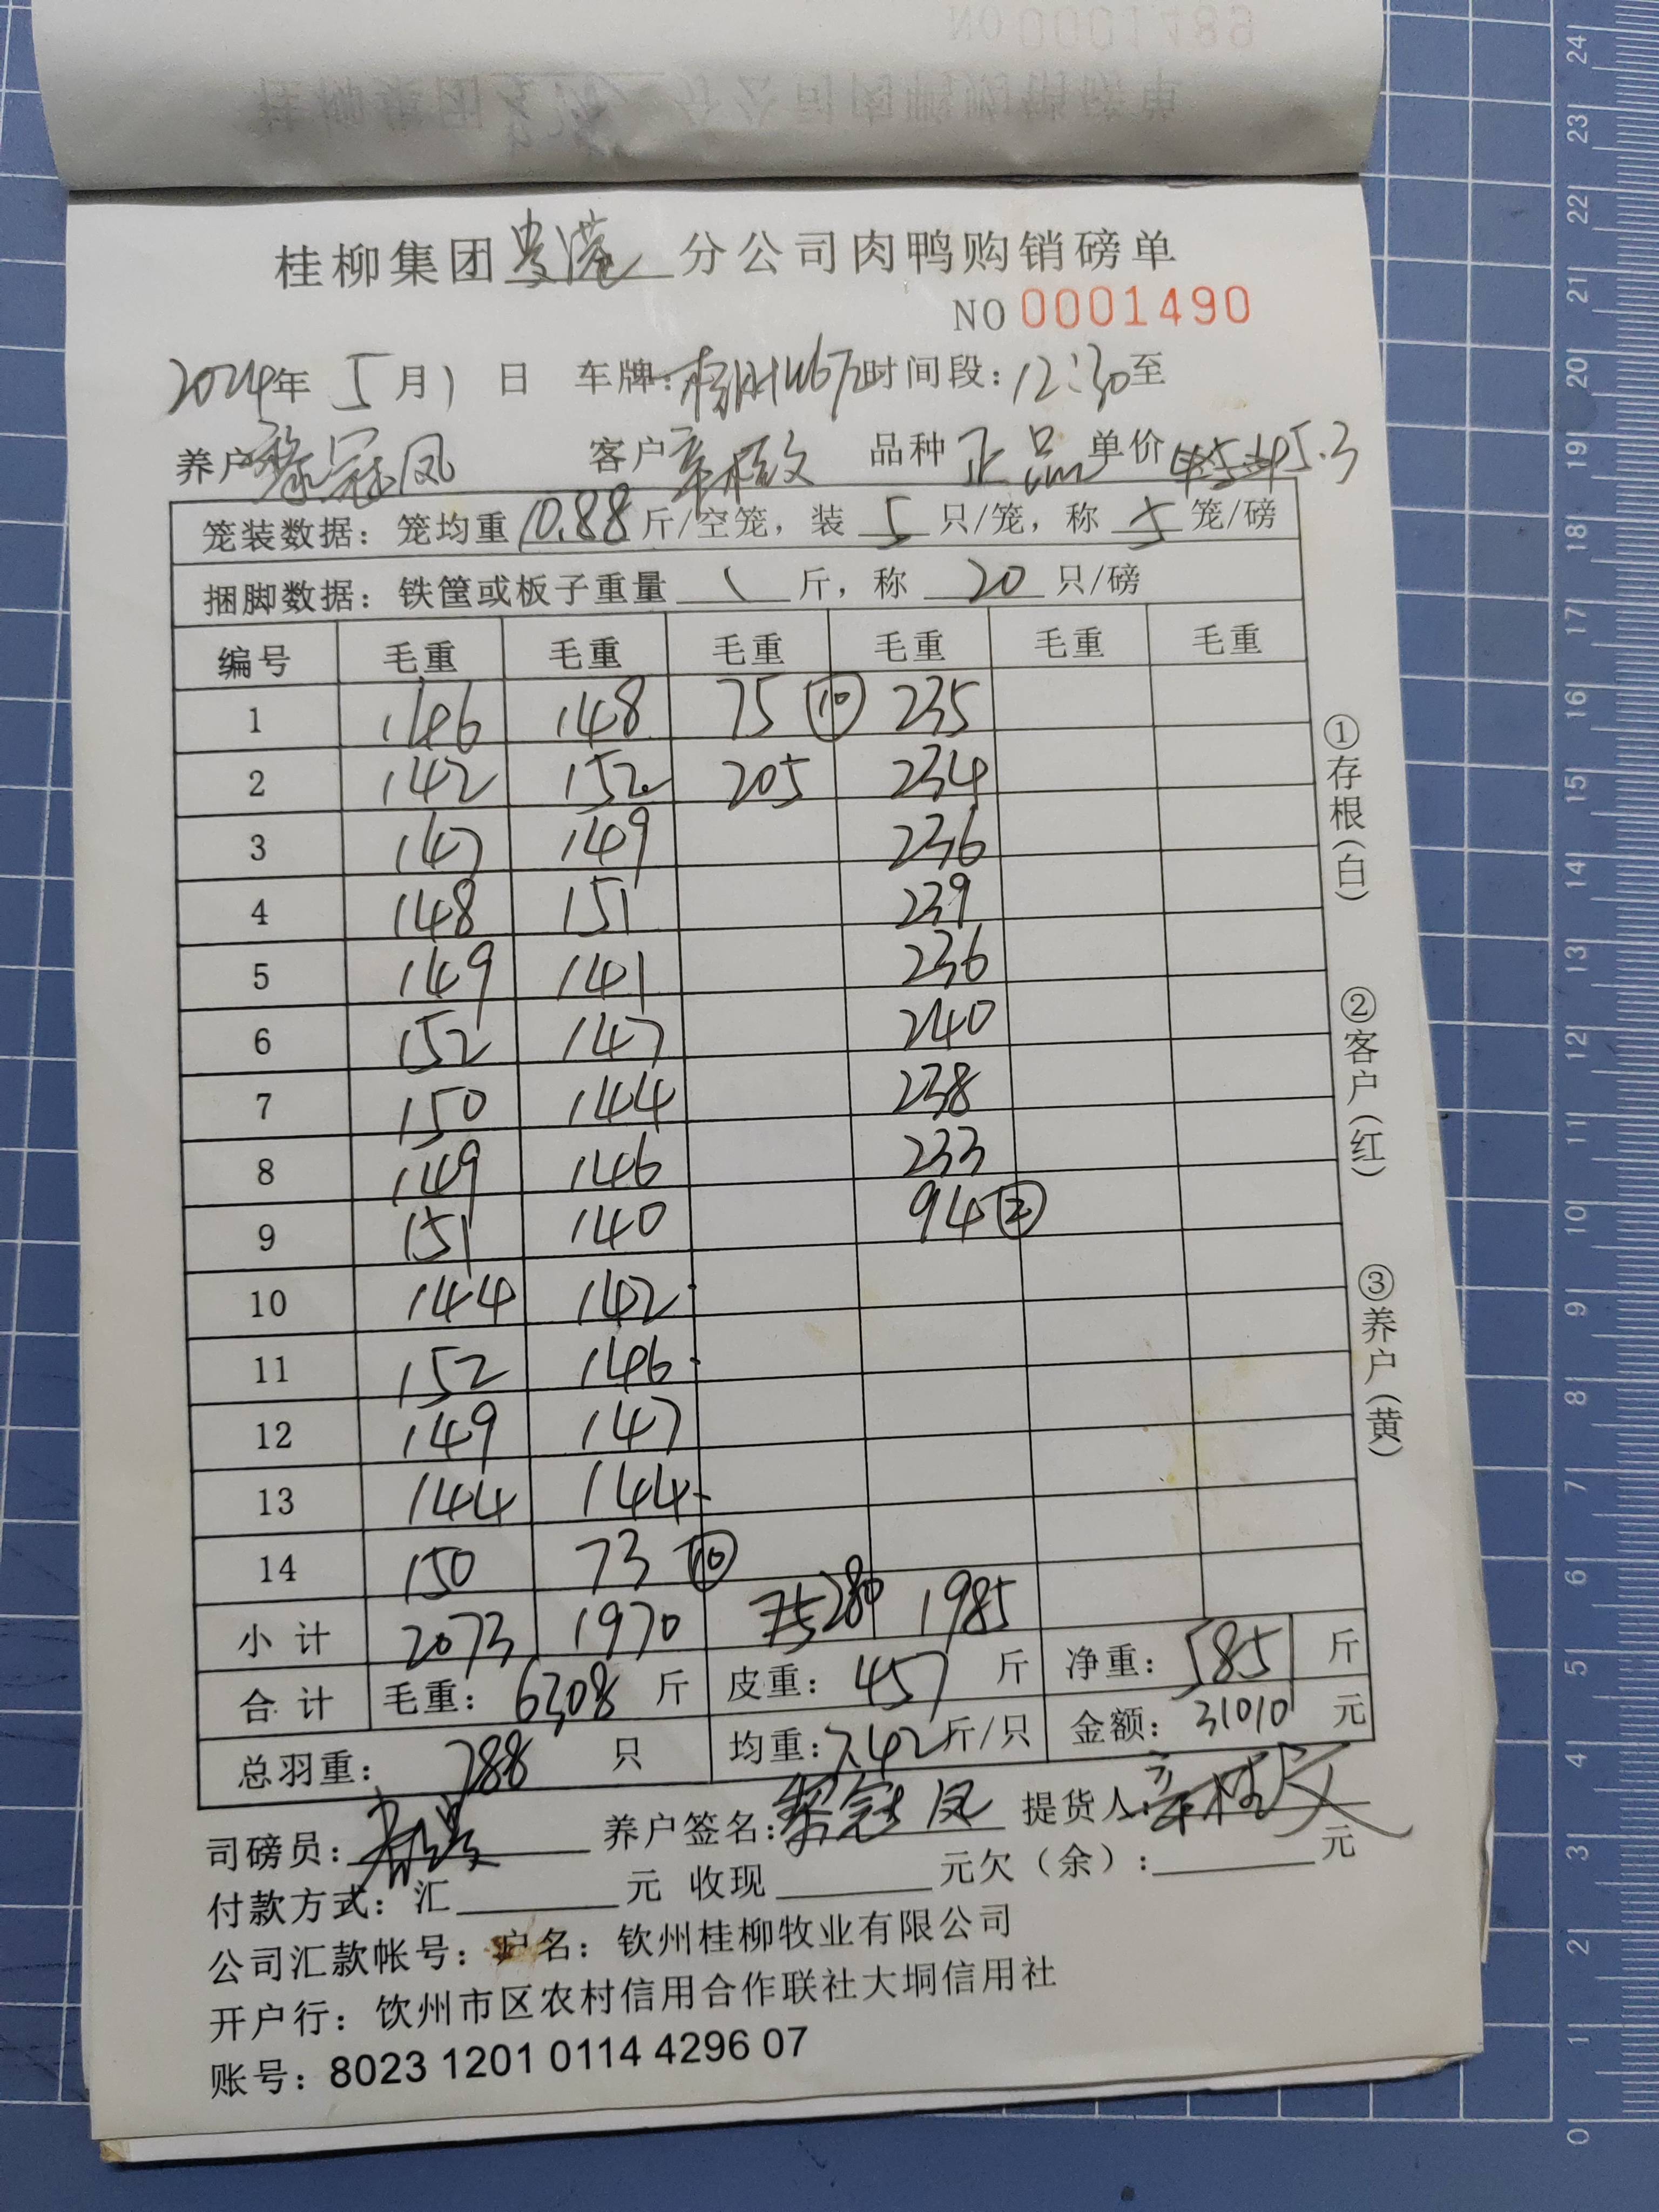 桂柳集团贵港分公司肉鸭购销磅单
NO 0001490
2024年 5月1日 车牌: 时间段:12:30至
养户 冠凤 客户 品种 正品 单价 5.3
笼装数据:笼均重 10.88 斤/空笼,装 5 只/笼,称 5 笼/磅
捆脚数据:铁筐或板子重量 \ 斤,称 20 只/磅
编号 毛重 毛重 毛重 毛重 毛重 毛重
1 146 148 75 ⑩ 235
2 142 152 205 234
3 147 149 236
4 148 151 239
5 149 141 236
6 152 147 240
7 150 144 238
8 149 146 233
9 151 140 94
10 144 142
11 152 146
12 149 147
13 144 144
14 150 73 ⑩
小计 2073 1970 280 1985
合计 毛重:6308 斤 皮重:457 斤 净重:5851 斤
总羽重:788 只 均重:7.42斤/只 金额:31010 元
司磅员: 养户签名: 冠凤 提货人:
付款方式:汇 元 收现 元欠(余): 元
公司汇款帐号:户名:钦州桂柳牧业有限公司
开户行:钦州市区农村信用合作联社大垌信用社
账号:8023 1201 0114 4296 07
①存根(白) ②客户(红) ③养户(黄)
24
23
22
21
20
19
18
17
16
15
14
13
12
11
10
9
8
7
6
5
4
3
2
1
0